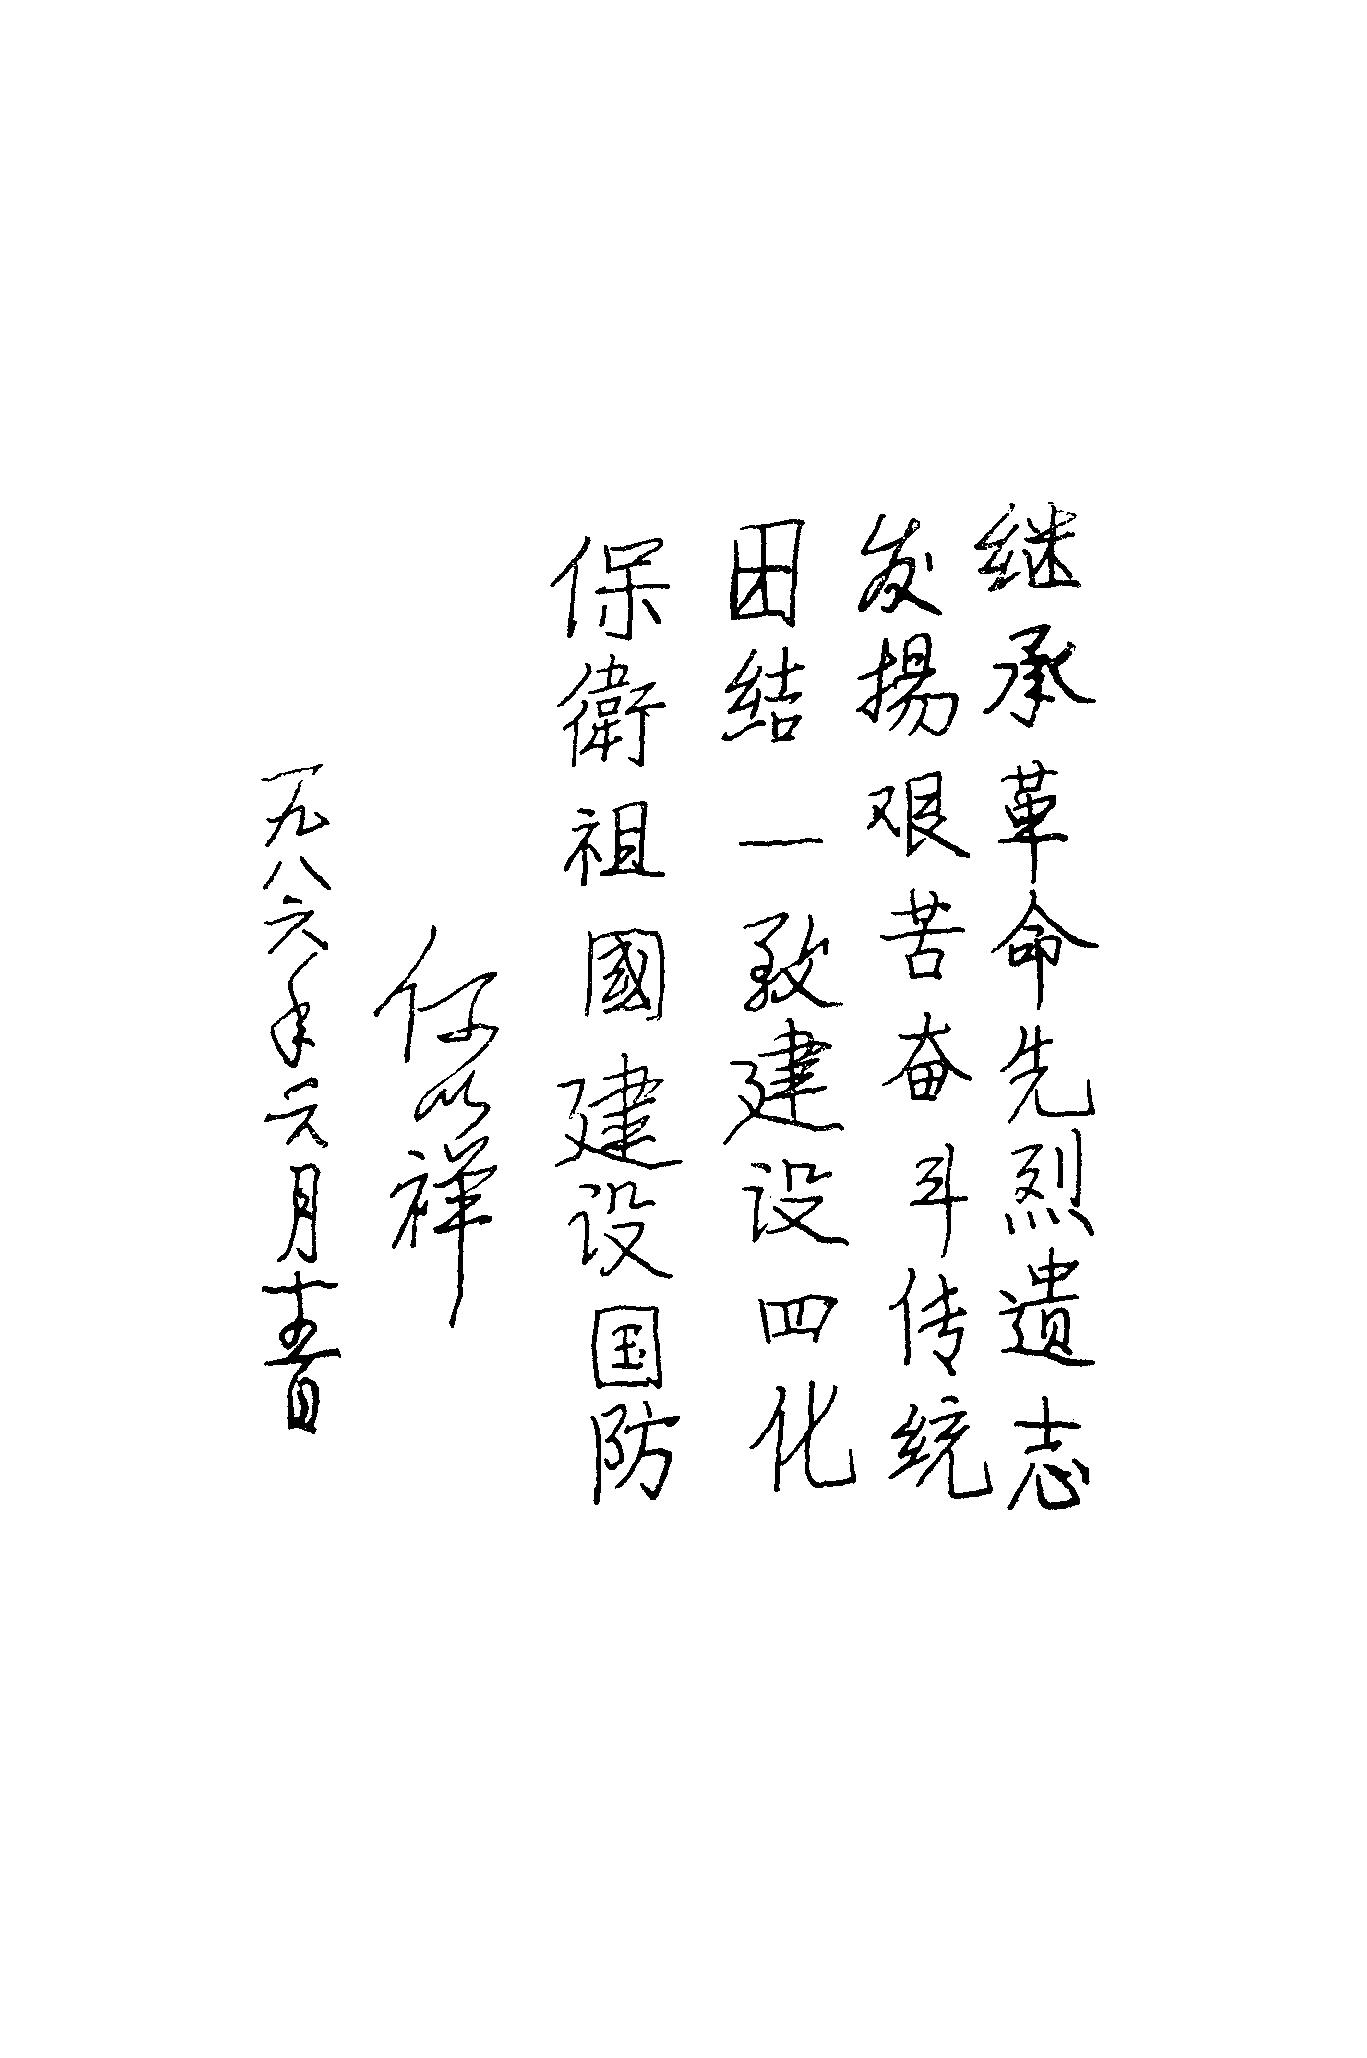 继承革命先烈遗志
发揚艰苦奋斗传统
团结一致建设四化
保衛祖國建设国防
何以祥
一九八六年元月十五日